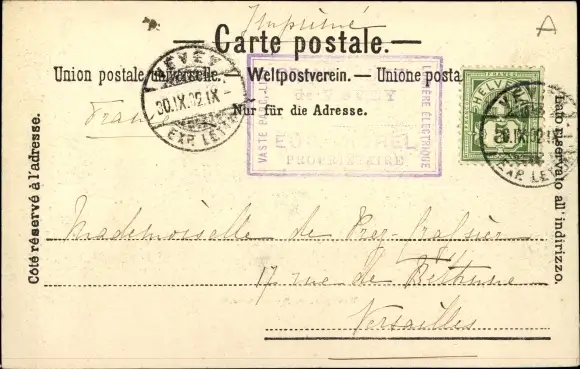 Imprimé
A
— Carte postale. —
Union postale universelle. — Weltpostverein. — Unione posta
Nur für die Adresse.
Côté réservé à l'adresse.
Lato riservato all' indirizzo.
VEVEY
30.IX.02.IX-
EXP. LETTR.
de VEVEY
PROPRIÉTAIRE
VASTE
ÉLECTRIQUE
FRANCO
HELVETIA
5
VEVEY
30.IX.02.IX
EXP. LET
Mademoiselle de
17 rue de Béthune
Versailles